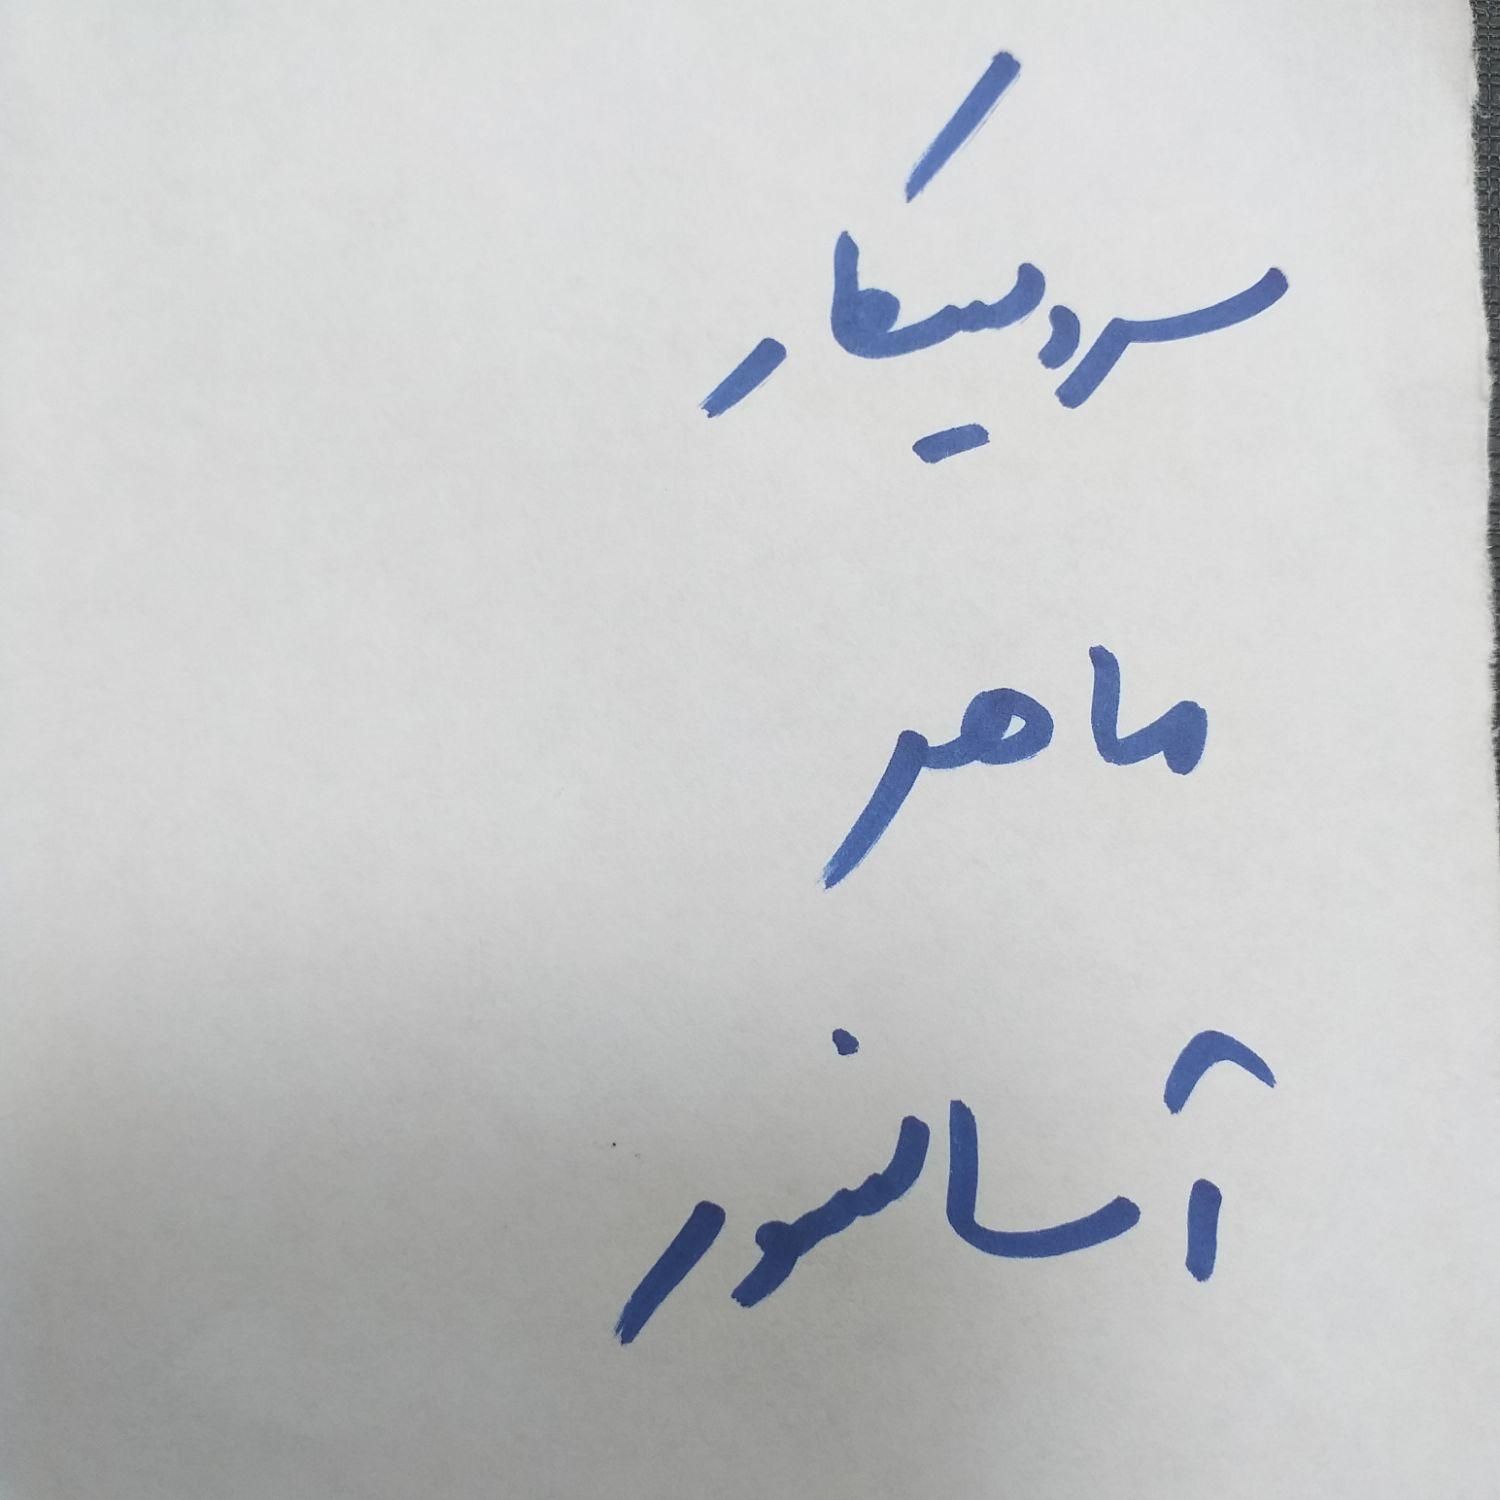 سرویسکار
ماهر
آسانسور